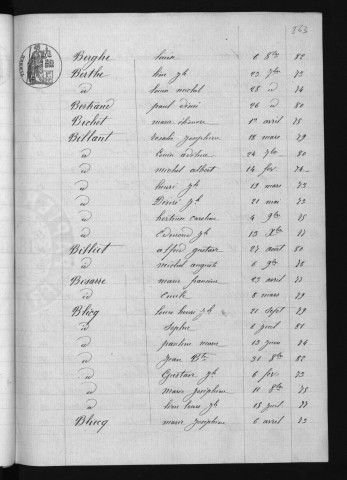 263
TIMBRE
Berghe Louis 6 8bre 82
Berthe Léon Jh 23 7bre 73
id Louis michel 28 id 74
Bertrand paul rémi 26 id 80
Bichet marie éléonore 1er avril 78
Billaut rosalie joséphine 18 mars 79
id 24 7bre 80
id michel albert 14 fév. 74
id henri Jh 19 mars 73
id Désiré Jh 21 mai 73
id hortense caroline 4 9bre 75
id Edmond Jh 13 Xbre 77
Billiet alfred gustave 27 août 80
id michel auguste 6 9bre 78
Bisarre marie francine 23 avril 77
id Emile 8 mars 79
Blicq louis henri Jh 21 sept 79
id Sophie 6 juil 81
id pauline marie 13 juin 74
id Jean Bte 30 8bre 82
id Gustave Jh 6 fév. 73
id marie joséphine 11 8bre 75
id léon louis Jh 15 juil 77
Blireq marie joséphine 6 avril 73